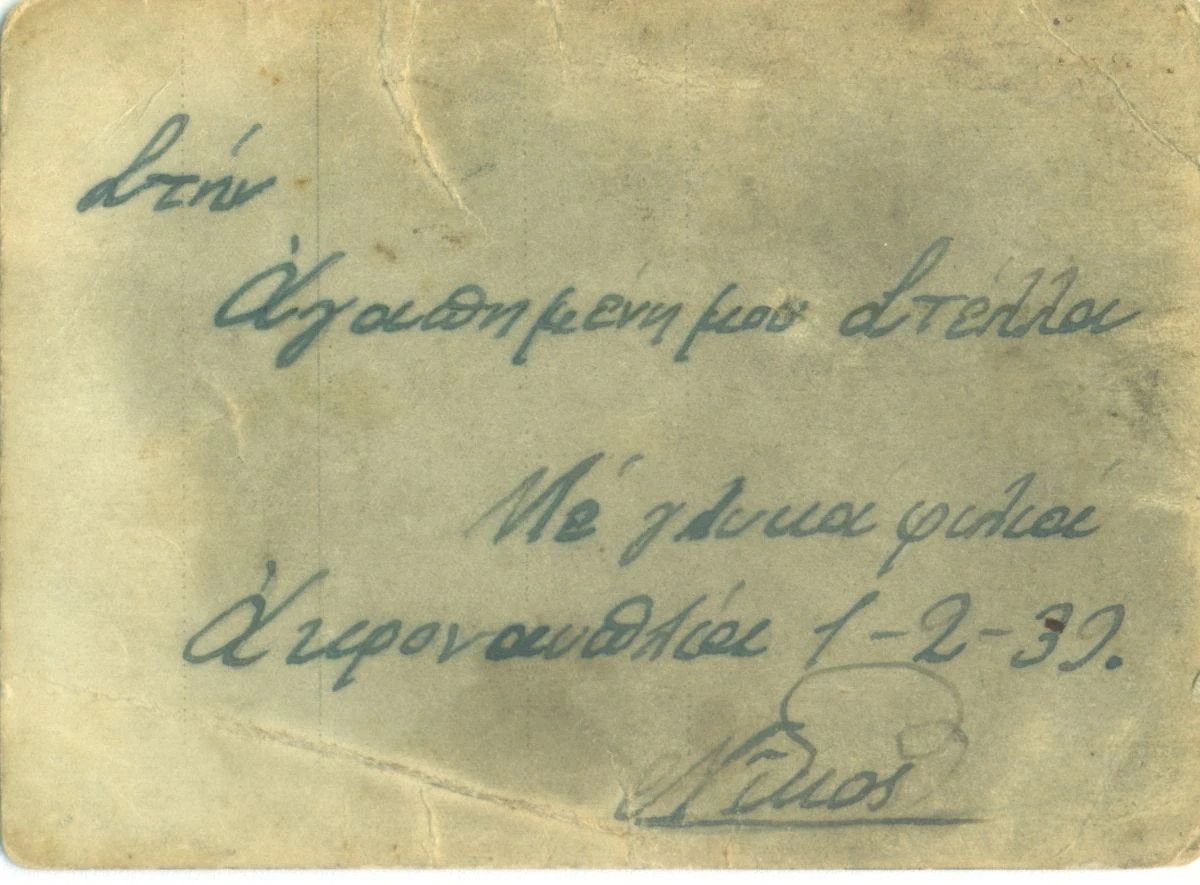 Στήν
Ἀγαπημένη μου Στέλλα
Μέ γλυκά φιλιά
Ἀκροναυπλία 1-2-39.
Νῖκος